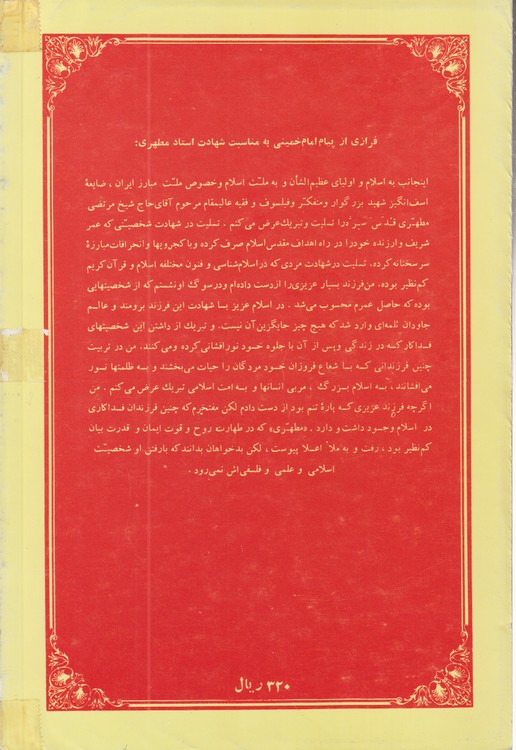 فرازی از پیام امام خمینی به مناسبت شهادت استاد مطهری:
اینجانب به اسلام و اولیای عظیم‌الشأن و به ملت اسلام وخصوص ملت مبارز ایران ، ضایعهٔ
اسف‌انگیز شهید بزرگوار ومتفکر وفیلسوف و فقیه عالیمقام مرحوم آقای حاج شیخ مرتضی
مطهری قدس سره را تسلیت وتبریك عرض می‌کنم . تسلیت در شهادت شخصیتی که عمر
شریف وارزنده خود را در راه اهداف مقدس اسلام صرف کرده وباکجرویها وانحرافات مبارزهٔ
سرسختانه کرده. تسلیت درشهادت مردی که دراسلام‌شناسی و فنون مختلفه اسلام و قرآن کریم
کم‌نظیر بوده. من‌فرزند بسیار عزیزی‌را ازدست داده‌ام ودرسوگ اونشستم که از شخصیتهایی
بوده که حاصل عمرم محسوب می‌شد . در اسلام عزیز بـا شهادت این فرزند برومند و عالـم
جاودان ثلمه‌ای وارد شد که هیچ چیز جایگزین‌آن نیست. و تبریك از داشتن این شخصیتهای
فداکار کـه در زندگی وپس از آن با جلوه خـود نورافشانی کرده ومی‌کنند. من در تربیت
چنین فرزندانی کـه بـا شعاع فروزان خـود مردگان را حیات می‌بخشند و بـه ظلمتها نـور
می‌افشانند، بـه اسلام بـزرگ ، مربی انسانها و بـه امت اسلامی تبریك عرض می‌کنم . من
اگرچه فرزند عزیزی کـه پارهٔ تنم بود از دست دادم لکن مفتخرم که چنین فرزندان فـداکاری
در اسلام وجـود داشت و دارد . «مطهـّری» که در طهارت روح و قوت ایمان و قدرت بیان
کم‌نظیر بود ، رفت و به ملأ اعـلا پیوست، لکن بدخواهان بدانند که بارفتن او شخصیـّت
اسلامی و علمی و فلسفی‌اش نمی‌رود .
۳۲۰ ریال